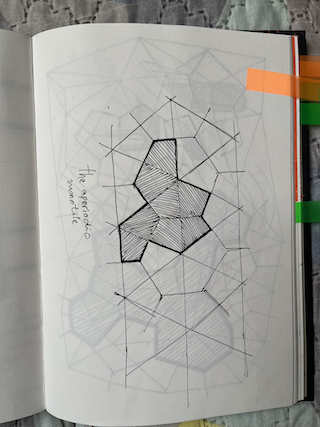 the aperiodic
monotile